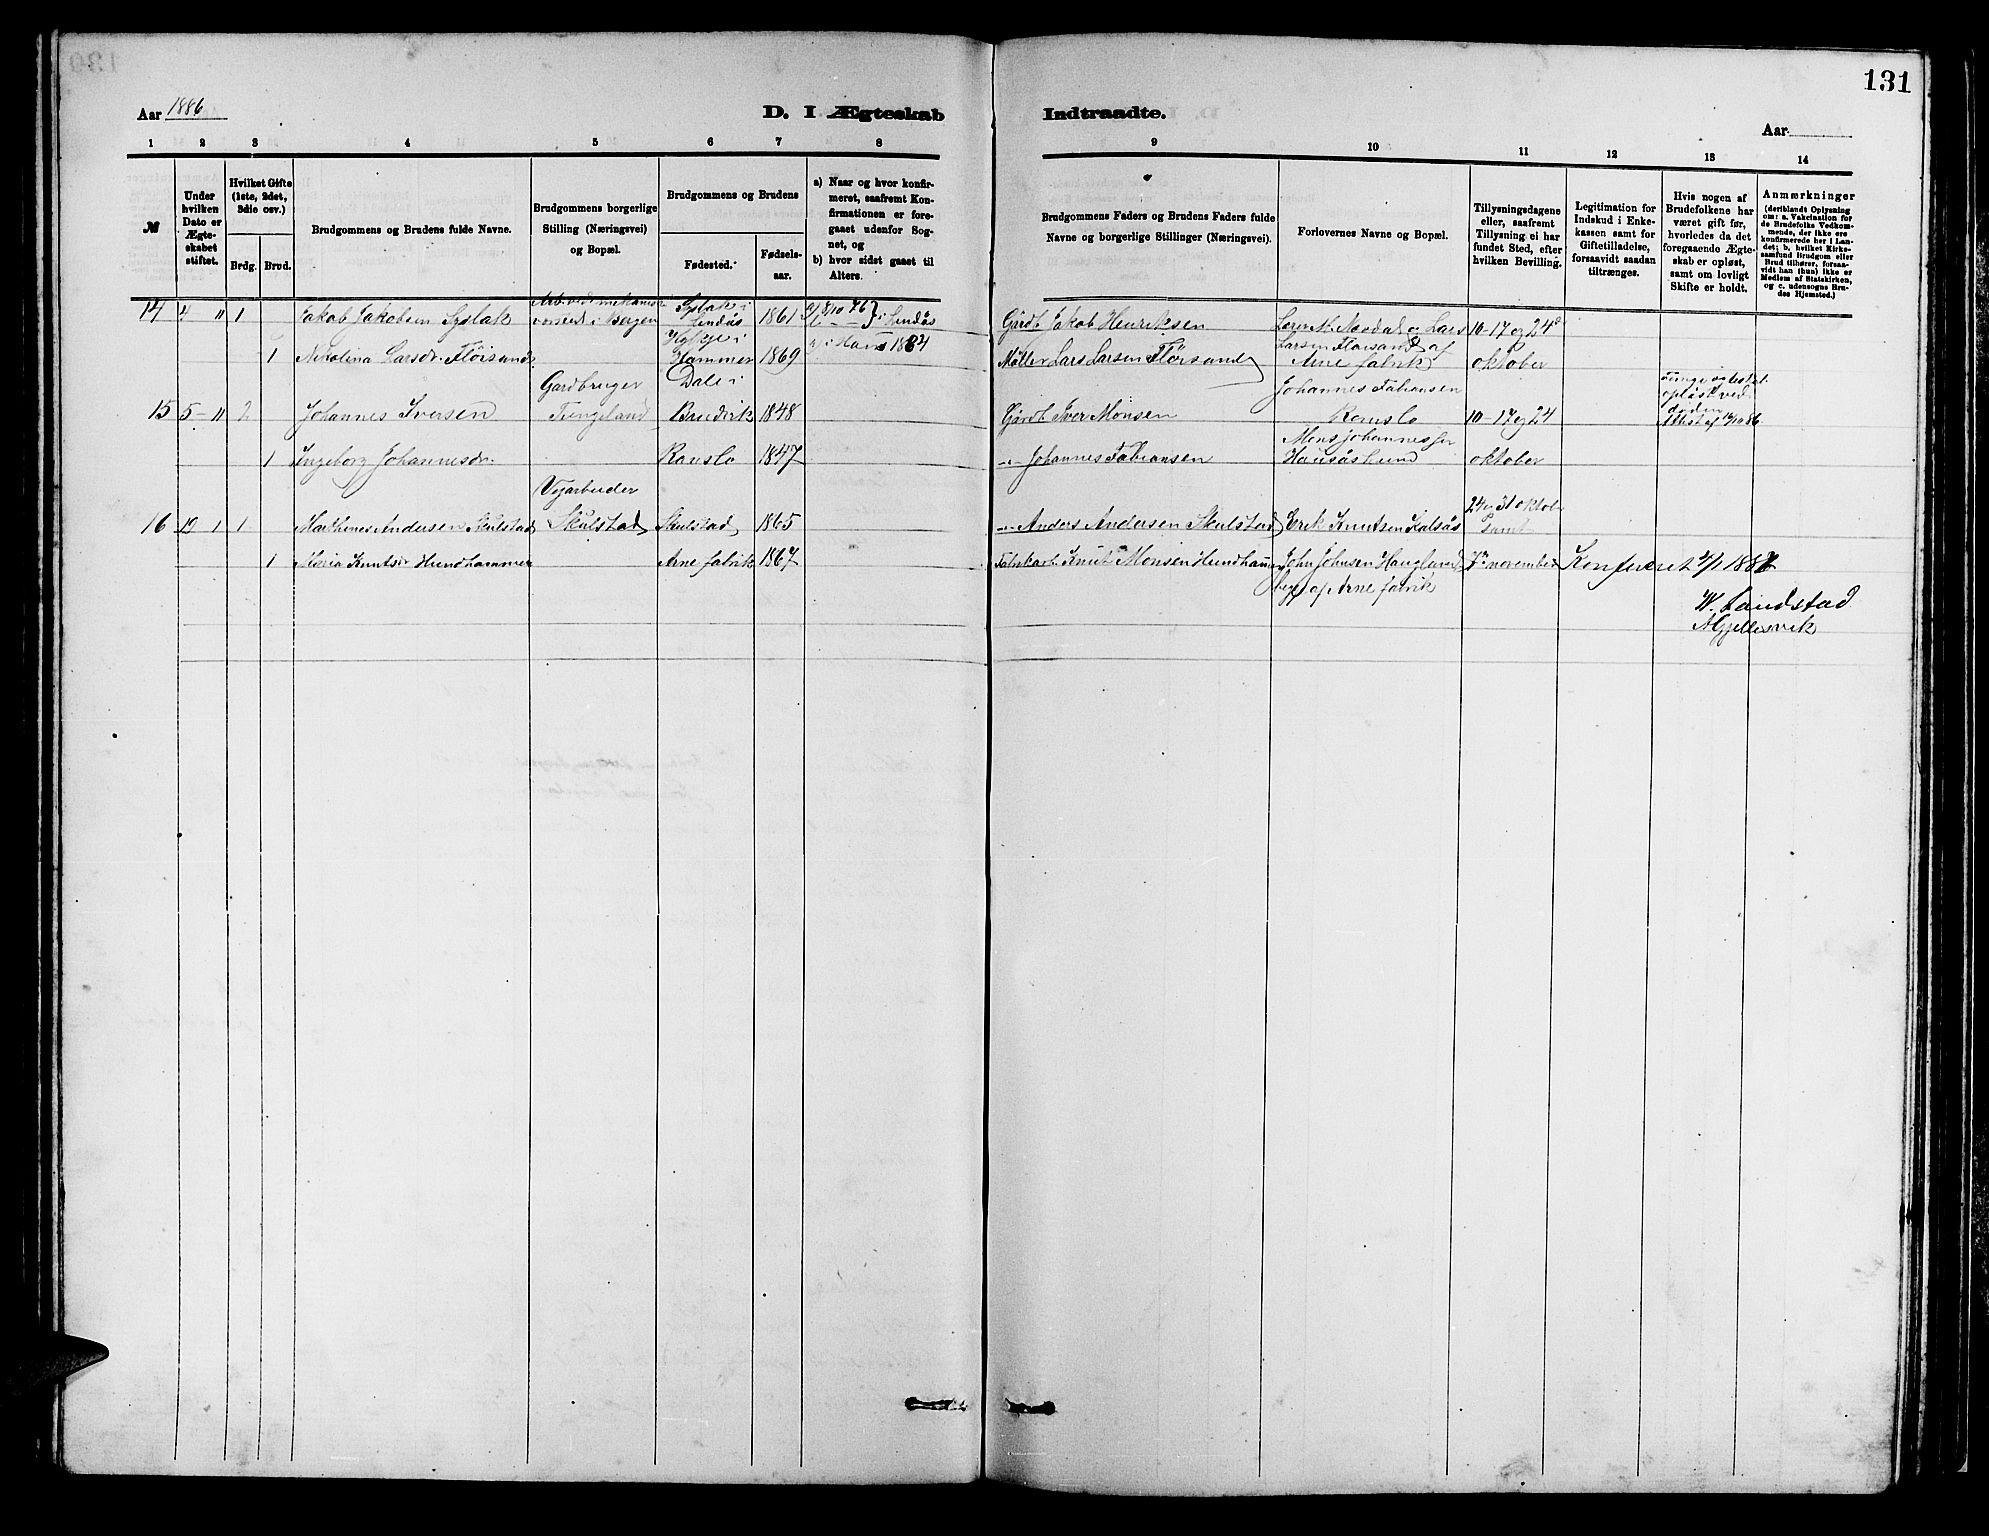 131
Aar 1886
D. I Ægteskab Indtraadte.
Aar
1 2 3 4 5 6 7 8 9 10 11 12 13 14
№
Under hvilken Dato er Ægteskabet stiftet.
Hvilket Gifte (1ste, 2det, 3die osv.)
Brdg. Brud.
Brudgommens og Brudens fulde Navne.
Brudgommens borgerlige Stilling (Næringsvei) og Bopæl.
Brudgommens og Brudens
Fødested. Fødselsaar.
a) Naar og hvor konfirmeret, saafremt Konfirmationen er foregaaet udenfor Sognet, og
b) hvor sidst gaaet til Alters.
Brudgommens Faders og Brudens Faders fulde Navne og borgerlige Stillinger (Næringsvei).
Forlovernes Navne og Bopæl.
Tillysningsdagene eller, saafremt Tillysning ei har fundet Sted, efter hvilken Bevilling.
Legitimation for Indskud i Enkekassen samt for Giftetilladelse, forsaavidt saadan tiltrænges.
Hvis nogen af Brudefolkene har været gift før, hvorledes da det foregaaende Ægteskab er opløst, samt om lovligt Skifte er holdt.
Anmærkninger (deriblandt Oplysning om: a. Vakcination for de Brudefolks Vedkommende, der ikke ere konfirmerede her i Landet; b. hvilket Kirkesamfund Brudgom eller Brud tilhører, forsaavidt han (hun) ikke er Medlem af Statskirken, og c. udensogns Brudes Hjemsted.)
14 4 11 1 Jakob Jakobsen Syslak Arb. ved mekanisk værksted i Bergen Syslak i Lindås 1861 a/ 8/10 76 i Lindås Gårdb Jakob Henriksen og Lars 10-17 og 24de
1 Nikolina Larsdr. Flöisand i Hammer 1869 i Havs 1884 Møller Lars Larsen Florsand Larsen Florsand af Arne fabrik oktober
15 5 - 11 2 Johannes Iversen Gardbruger Tungeland Dale i 1848 Gårdb Iver Monsen Johannes Fabiansen Romslo 10-17 og 24 opløst ved døden Attest af 12/10 86
1 Ingeborg Johannesdr. Romslo 1847 -"- Johannes Fabiansen Mons Johannessen oktober
16 19 1 1 Mathines Andersen Skulstad Vejarbeider Skulstad Skulstad 1865 -"- Anders Andersen Skulstad Erik Knutsen Kalsås 24 og 31 oktober samt
1 Maria Knutsdr Hundhammer Arne fabrik 1867 Fabrikarb. Knut Monsen Hundhammer John Johnsen Haugland begge af Arne fabrik 7de november
Konfereret 4/1 1887
W. Landstad
A Gjellesvik